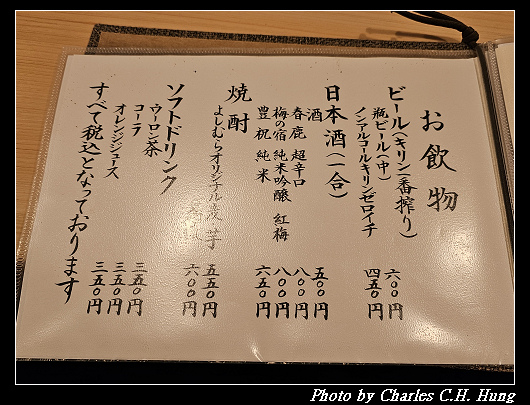 お飲物
ビール(キリン一番搾り)
瓶ビール(中) 六〇〇円
ノンアルコールキリンゼロイチ 四五〇円
日本酒(一合)
酒 五〇〇円
春鹿 超辛口 八〇〇円
梅の宿 純米吟醸 紅梅 八〇〇円
豊祝 純米 六五〇円
焼酎
よしむらオリジナル 麦 芋 五五〇円
六〇〇円
ソフトドリンク
ウーロン茶 三五〇円
コーラ 三五〇円
オレンジジュース 三五〇円
すべて税込となっております
Photo by Charles C.H. Hung